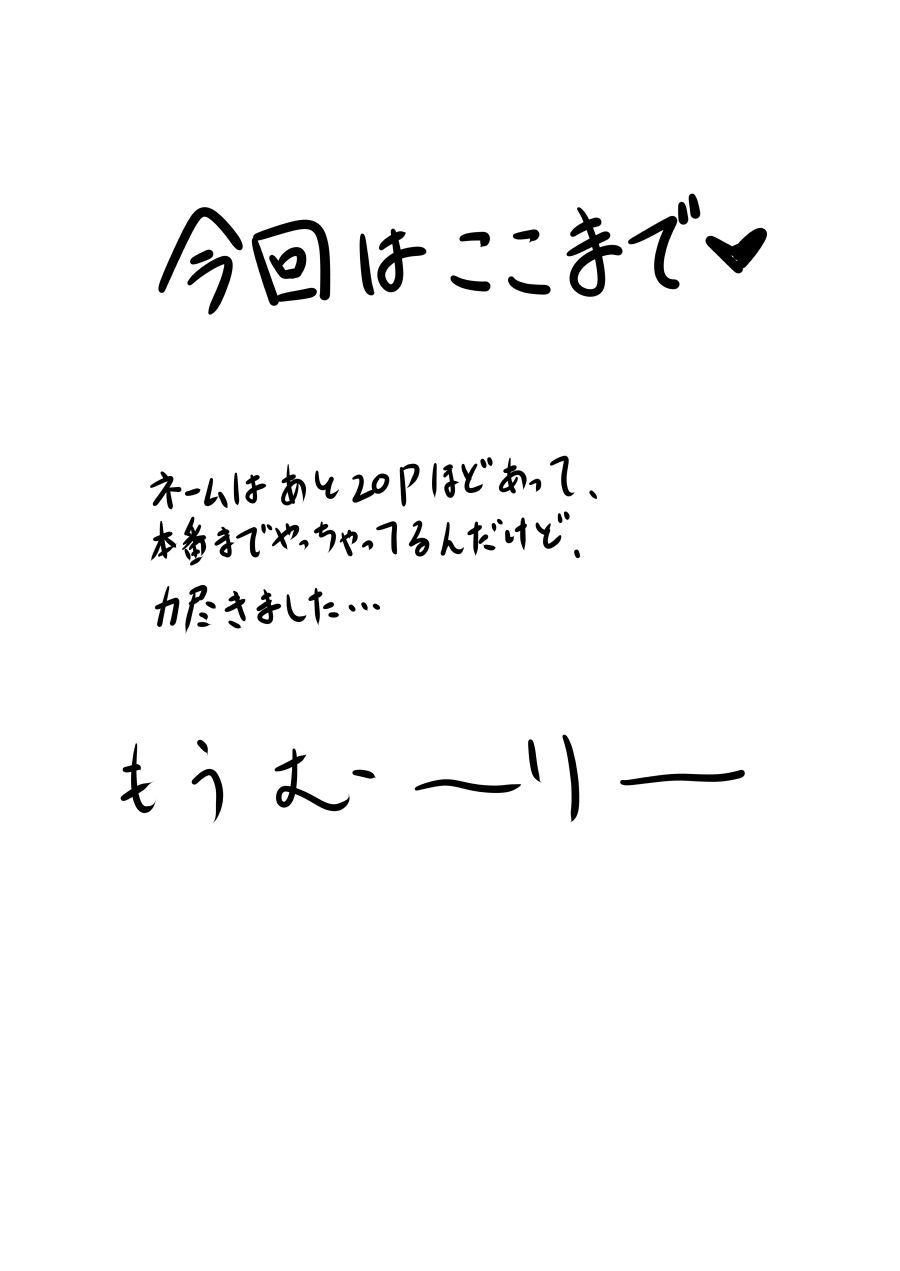 今回はここまで♥
ネームはあと20Pほどあって、
本番までやっちゃってるんだけど、
力尽きました…
もうむー〜リー